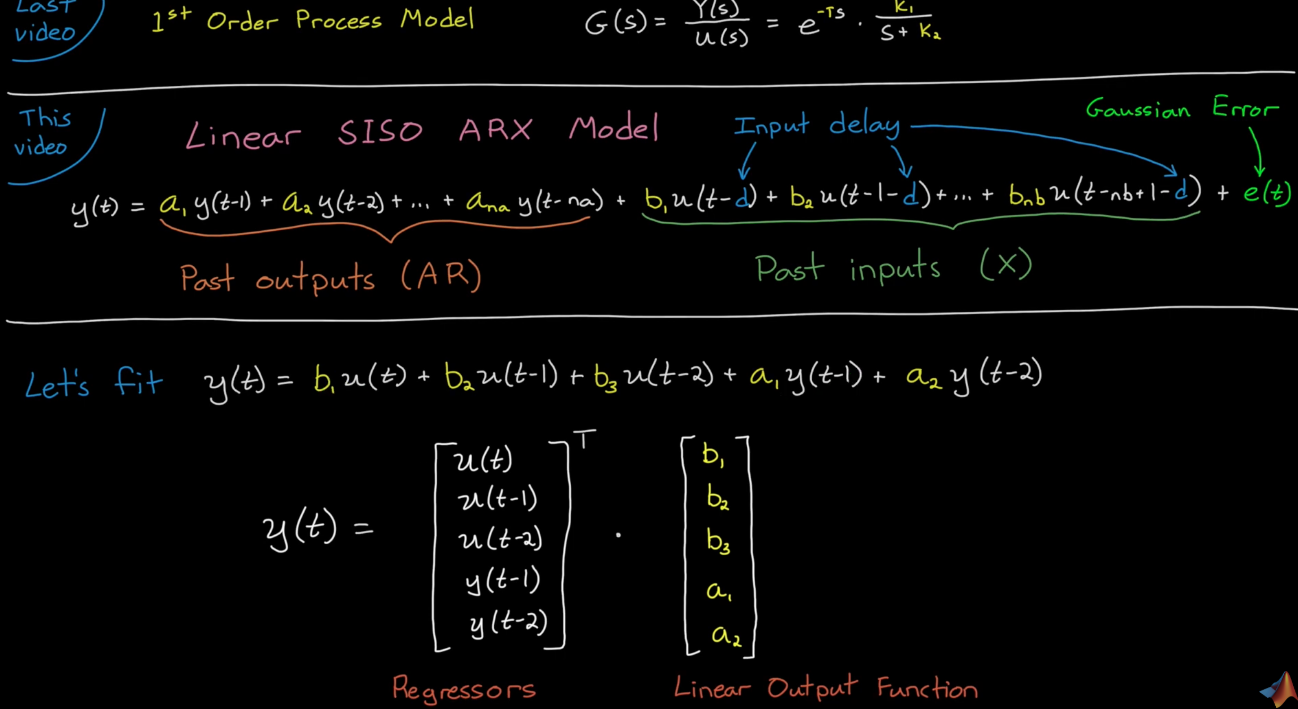 Last
video
1st Order Process Model
G(s) = Y(s)/U(s) = e^-Ts · k₁/(s + k₂)
This
video
Linear SISO ARX Model
Input delay
Gaussian Error
y(t) = a₁ y(t-1) + a₂ y(t-2) + ... + aₙₐ y(t-na) + b₁ u(t-d) + b₂ u(t-1-d) + ... + b_nb u(t-nb+1-d) + e(t)
Past outputs (AR)
Past inputs (X)
Let's fit y(t) = b₁ u(t) + b₂ u(t-1) + b₃ u(t-2) + a₁ y(t-1) + a₂ y(t-2)
y(t) = [u(t) u(t-1) u(t-2) y(t-1) y(t-2)]ᵀ · [b₁ b₂ b₃ a₁ a₂]
Regressors
Linear Output Function